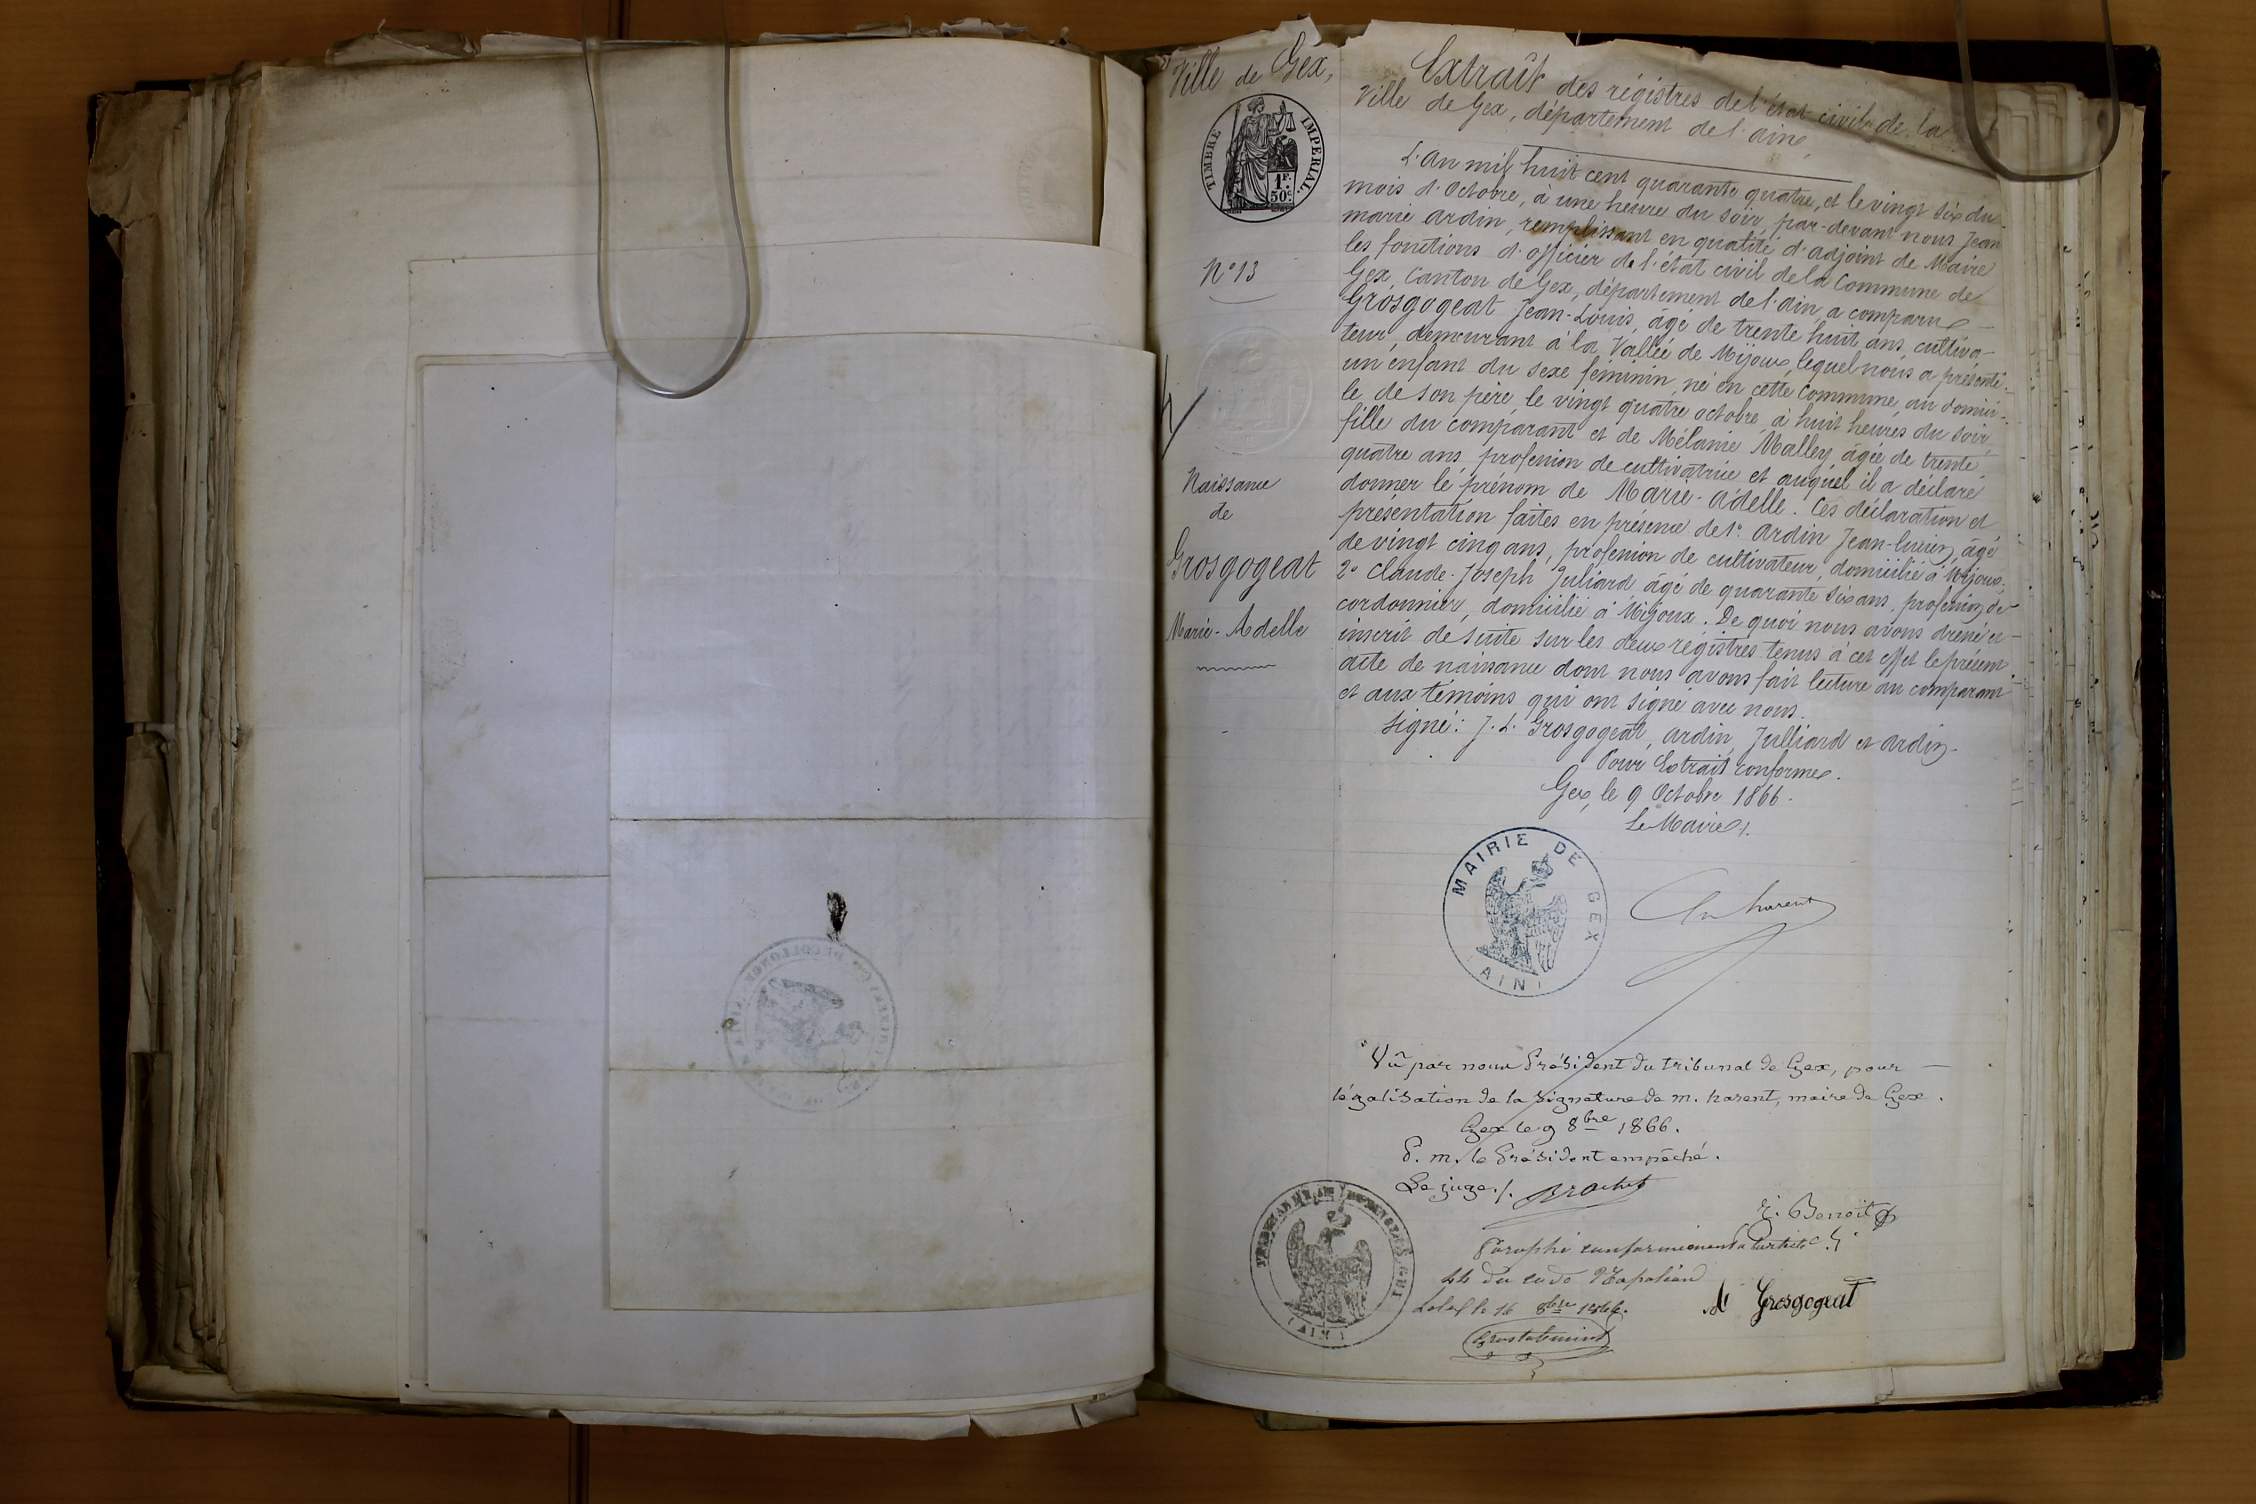 Ville de Gex,
TIMBRE IMPERIAL
1F. 50c.
N° 13
Naissance
de
Grosgogeat
Marie-Adelle
Extrait des régistres de l'état civil de la
Ville de Gex, département de l'ain,
L'an mil huit cent quarante quatre, et le vingt six du
mois d'Octobre, à une heure du soir, par-devant nous Jean
marie Ardin, remplissant en qualité d'adjoint de Maire
les fonctions d'officier de l'état civil de la Commune de
Gex, Canton de Gex, département de l'ain, a comparu
Grosgogeat Jean-Louis, âgé de trente huit ans, cultiva-
teur, demeurant à la Vallée de Mijoux, lequel nous a présenté
un enfant du sexe féminin, né en cette Commune, au domici-
le de son père, le vingt quatre octobre, à huit heures du soir,
fille du comparant et de Mélanie Malley âgée de trente
quatre ans, profession de cultivatrice et auquel il a déclaré
donner le prénom de Marie-adelle. Ces déclaration et
présentation faites en présence de 1° Ardin Jean-, âgé
de vingt cinq ans, profession de cultivateur, domicilié à Mijoux,
2° Claude-Joseph Juliard, âgé de quarante six ans, profession de
cordonnier, domicilié à Mijoux. De quoi nous avons dressé et
inscrit de suite sur les deux régistres tenus à cet effet le présent
acte de naissance dont nous avons fait lecture au comparant
et aux témoins qui ont signé avec nous.
Signé: J. L. Grosgogeat, ardin, Julliard et Ardin.
Pour Extrait conforme.
Gex, le 9 Octobre 1866.
Le Maire /.
MAIRIE DE GEX
(AIN)
harent
Vû par nous Président du tribunal de Gex, pour
légalisation de la signature de m. harent, maire de Gex.
Gex le 9 8bre 1866.
P. m. le Président empêché.
Le juge /. Brachet
(AIN)
Benoit
Paraphé conformément à l'article
44 du code Napoléon
le 16 8bre 1866.
Grosgogeat